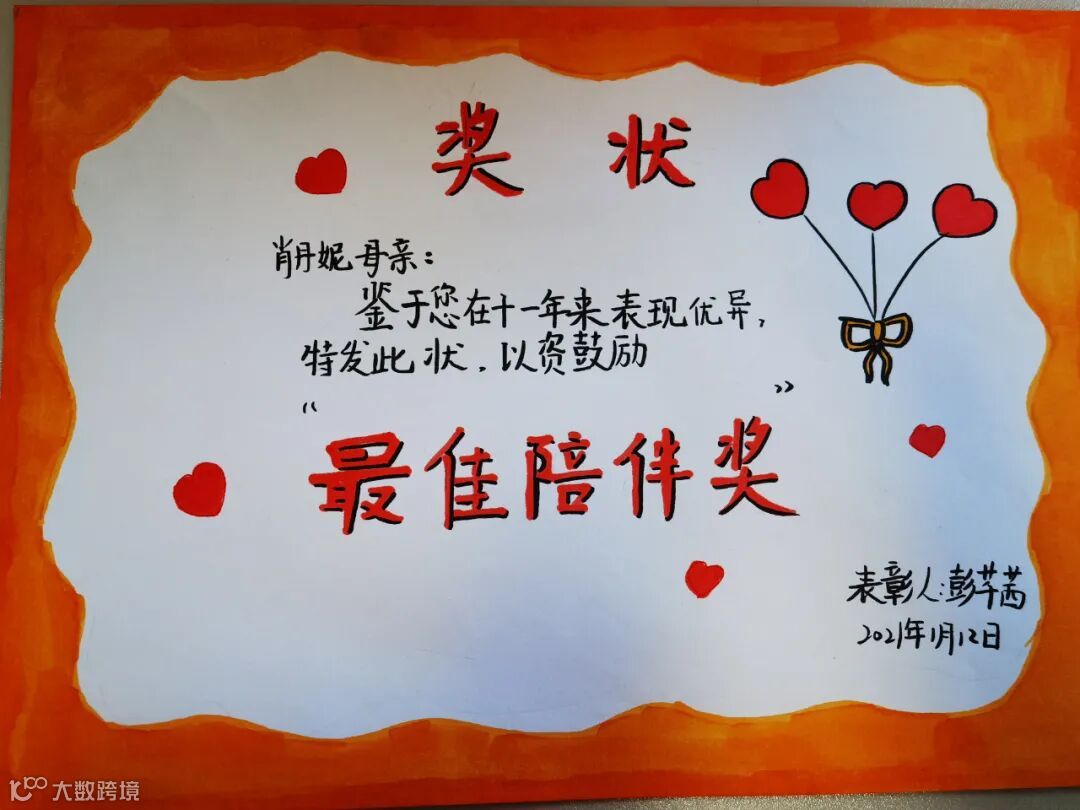 奖 状
肖丹妮母亲：
鉴于您在十一年来表现优异，
特发此状，以资鼓励
“ ”
最佳陪伴奖
表彰人：彭芊茜
2021年1月12日
大数跨境